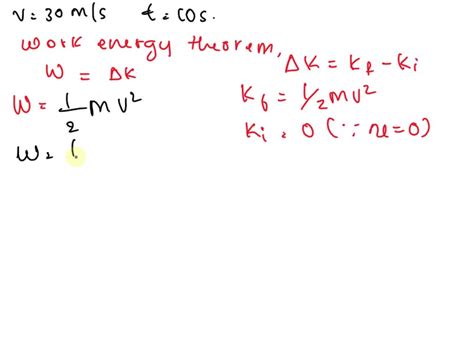 v = 30 m/s   t = 60s.
Work energy theorem,
W = ΔK
ΔK = Kf - Ki
W = 1/2 mv²
Kf = 1/2 mv²
Ki = 0 (∵ u=0)
W = (